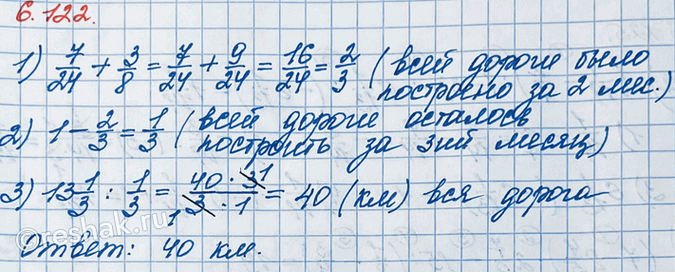 6.122.
1) 7/24 + 3/8 = 7/24 + 9/24 = 16/24 = 2/3 (всей дороги было
построено за 2 мес.)
2) 1 - 2/3 = 1/3 (всей дороги осталось
построить за 3ий месяц)
3) 13 1/3 : 1/3 = 40 · 3 1 / 1 3 · 1 = 40 (км) вся дорога
Ответ: 40 км.
©reshak.ru